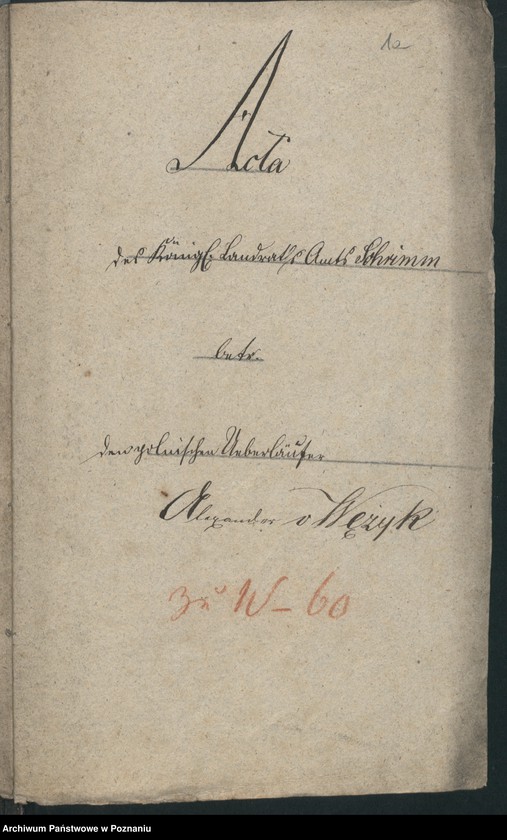 1a
Acta
des Königl. Landraths Amts Schrimm
betr.
den polnischen Ueberläufer
Alexander v Wężyk
zu W – 60
Archiwum Państwowe w Poznaniu